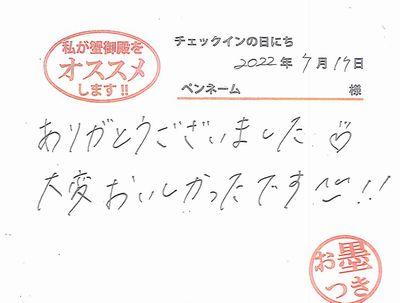 私が蟹御殿を
オススメ
します!!
チェックインの日にち
2022年 7月 17日
ペンネーム 様
ありがとうございました♡
大変おいしかったです〜!!
お墨
つき